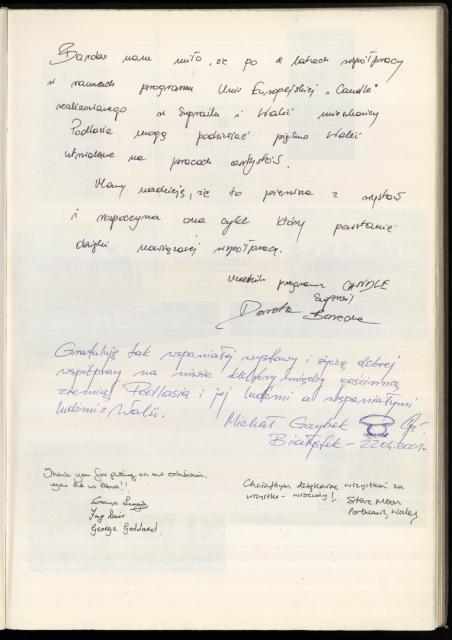 Bardzo nam miło, że po 2 latach współpracy
w ramach programu Unii Europejskiej "Candle"
realizowanego w Supraślu i Walii mieszkańcy
Podlasia mogą podziwiać piękno Walii
utrwalone na pracach artystów.
Mamy nadzieję, że to pierwsza z wystaw
i rozpoczyna ona cykl który powstanie
dzięki nawiązanej współpracy.
uczestnik programu CANDLE
Supraśl
Dorota
Gratuluję tak wspaniałej wystawy i życzę dobrej
współpracy na niwie kultury między gościnną
ziemią Podlasia i jej ludźmi a wspaniałymi
ludźmi z Walii.
Michał Grzybek
Białystok - 22.04.2001r.
Thank you for putting on our exhibition.
you did us proud!!
George Goddard.
Chciałbym dziękować wszystkim za
wszystko - wrócimy!
Steve
Wales